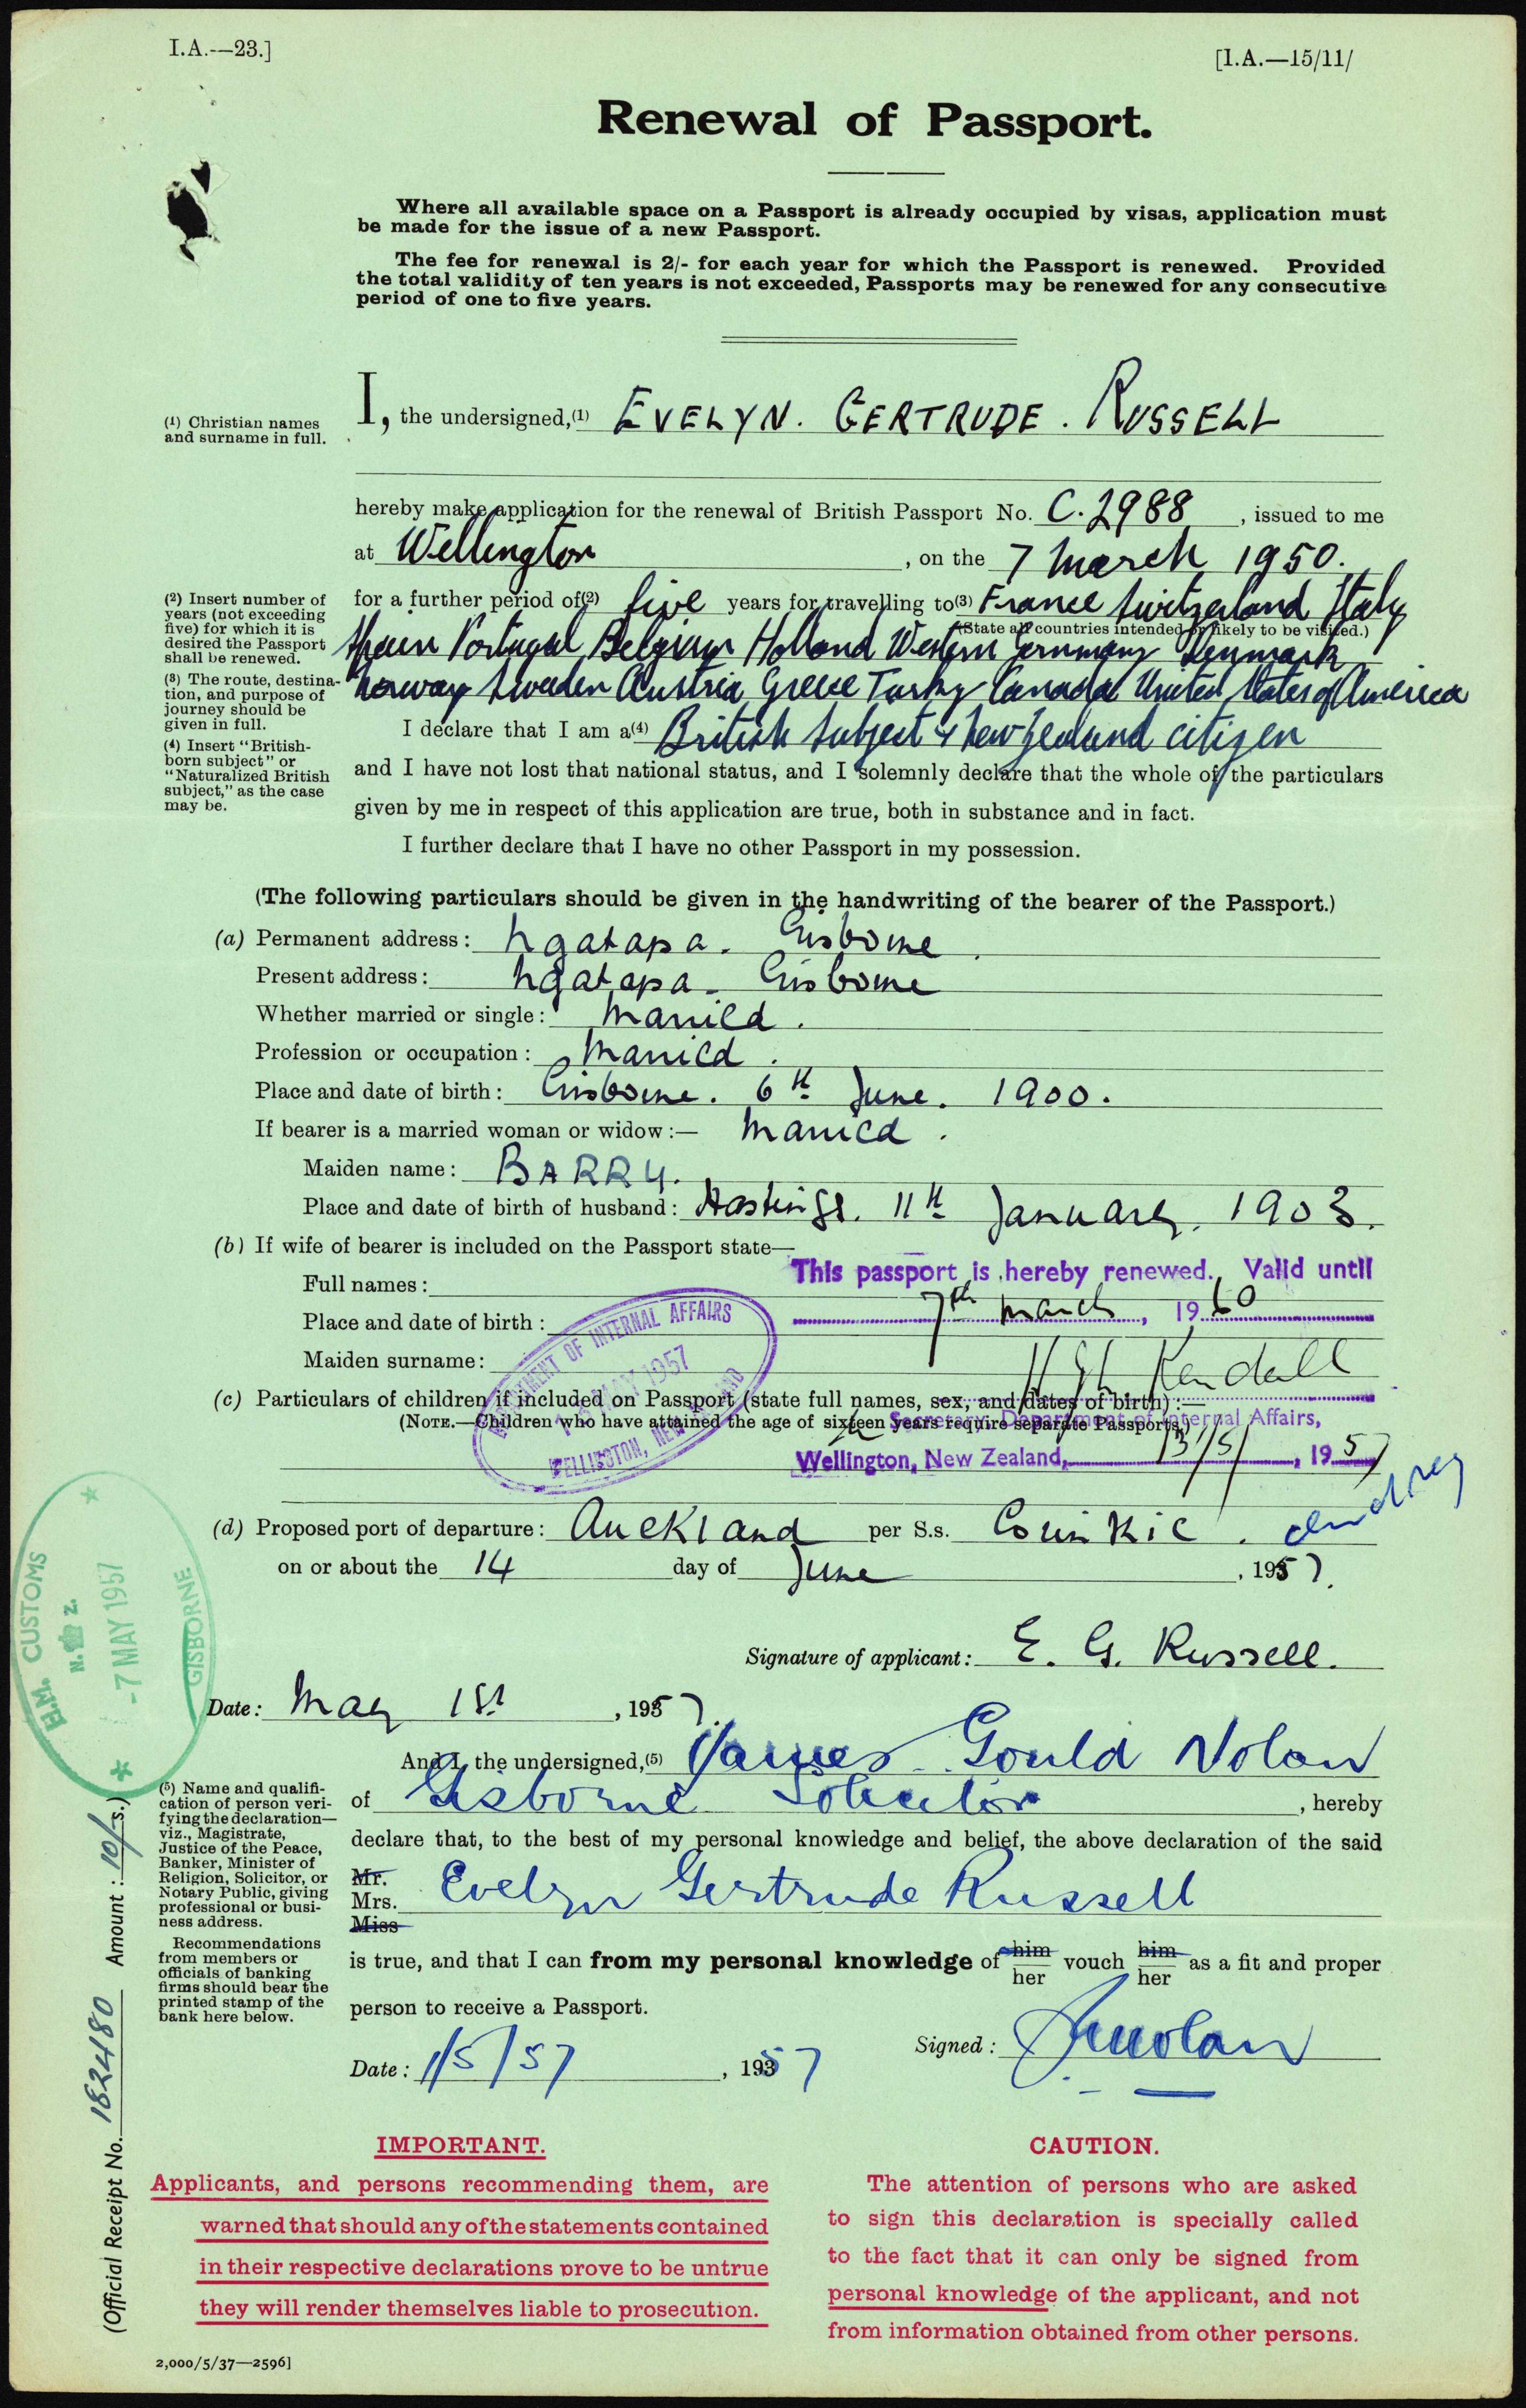 I.A.—23.]
[I.A.—15/11/
Renewal of Passport.
Where all available space on a Passport is already occupied by visas, application must
be made for the issue of a new Passport.
The fee for renewal is 2/- for each year for which the Passport is renewed. Provided
the total validity of ten years is not exceeded, Passports may be renewed for any consecutive
period of one to five years.
(1) Christian names
and surname in full.
I, the undersigned,(1) EVELYN. GERTRUDE. RUSSELL
hereby make application for the renewal of British Passport No. C.2988, issued to me
at Wellington, on the 7 March 1950.
(2) Insert number of
years (not exceeding
five) for which it is
desired the Passport
shall be renewed.
for a further period of(2) five years for travelling to(3) France Switzerland Italy
(State all countries intended or likely to be visited.)
Spain Portugal Belgium Holland Western Germany Denmark
(3) The route, destina-
tion, and purpose of
journey should be
given in full.
Norway Sweden Austria Greece Turkey Canada United States of America
(4) Insert "British-
born subject" or
"Naturalized British
subject," as the case
may be.
I declare that I am a(4) British Subject & New Zealand citizen
and I have not lost that national status, and I solemnly declare that the whole of the particulars
given by me in respect of this application are true, both in substance and in fact.
I further declare that I have no other Passport in my possession.
(The following particulars should be given in the handwriting of the bearer of the Passport.)
(a) Permanent address: Ngatapa. Gisborne.
Present address: Ngatapa. Gisborne
Whether married or single: Married.
Profession or occupation: Married.
Place and date of birth: Gisborne. 6th June. 1900.
If bearer is a married woman or widow:— Married.
Maiden name: BARRY.
Place and date of birth of husband: Hastings. 11th January. 1903.
(b) If wife of bearer is included on the Passport state—
This passport is hereby renewed. Valid until
Full names:
7th March, 1960
Place and date of birth:
Maiden surname:
Kendall
DEPARTMENT OF INTERNAL AFFAIRS
MAY 1957
WELLINGTON, NEW ZEALAND
(c) Particulars of children if included on Passport (state full names, sex, and dates of birth):—
(NOTE.—Children who have attained the age of sixteen years require separate Passports.)
Secretary, Department of Internal Affairs,
Wellington, New Zealand, 13/5/, 1957
(d) Proposed port of departure: Auckland per S.s. Corinthic.
on or about the 14 day of June, 1957.
H.M. CUSTOMS
N. Z.
-7 MAY 1957
GISBORNE
Signature of applicant: E. G. Russell.
Date: May 1st, 1957.
And I, the undersigned,(5) James Gould Nolan
of Gisborne Solicitor, hereby
declare that, to the best of my personal knowledge and belief, the above declaration of the said
Mr.
Mrs. Evelyn Gertrude Russell
Miss
(5) Name and qualifi-
cation of person veri-
fying the declaration—
viz., Magistrate,
Justice of the Peace,
Banker, Minister of
Religion, Solicitor, or
Notary Public, giving
professional or busi-
ness address.
Recommendations
from members or
officials of banking
firms should bear the
printed stamp of the
bank here below.
is true, and that I can from my personal knowledge of him her vouch him her as a fit and proper
person to receive a Passport.
Signed: JGNolan
Date: 1/5/57, 1957
(Official Receipt No. 182480 Amount: 10/-s.)
IMPORTANT.
Applicants, and persons recommending them, are
warned that should any of the statements contained
in their respective declarations prove to be untrue
they will render themselves liable to prosecution.
CAUTION.
The attention of persons who are asked
to sign this declaration is specially called
to the fact that it can only be signed from
personal knowledge of the applicant, and not
from information obtained from other persons.
2,000/5/37—2596]